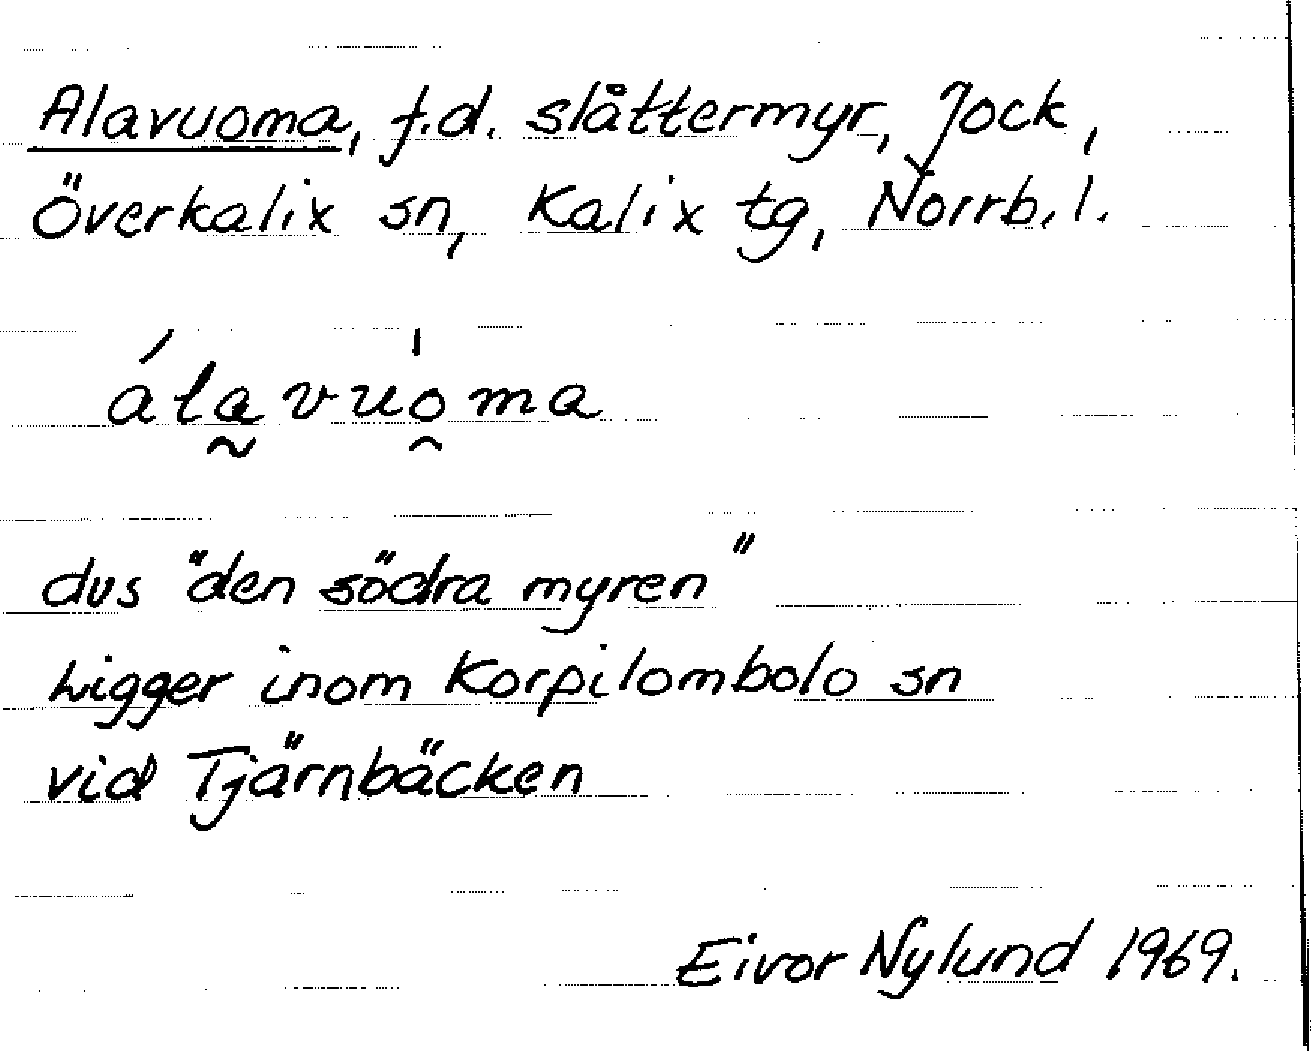 Alavuoma, f.d. slåttermyr, Jock,
Överkalix sn, Kalix tg, Norrb. l.
álavuo̍ma
dvs "den södra myren"
Ligger inom Korpilombolo sn
vid Tjärnbäcken
Eivor Nylund 1969.